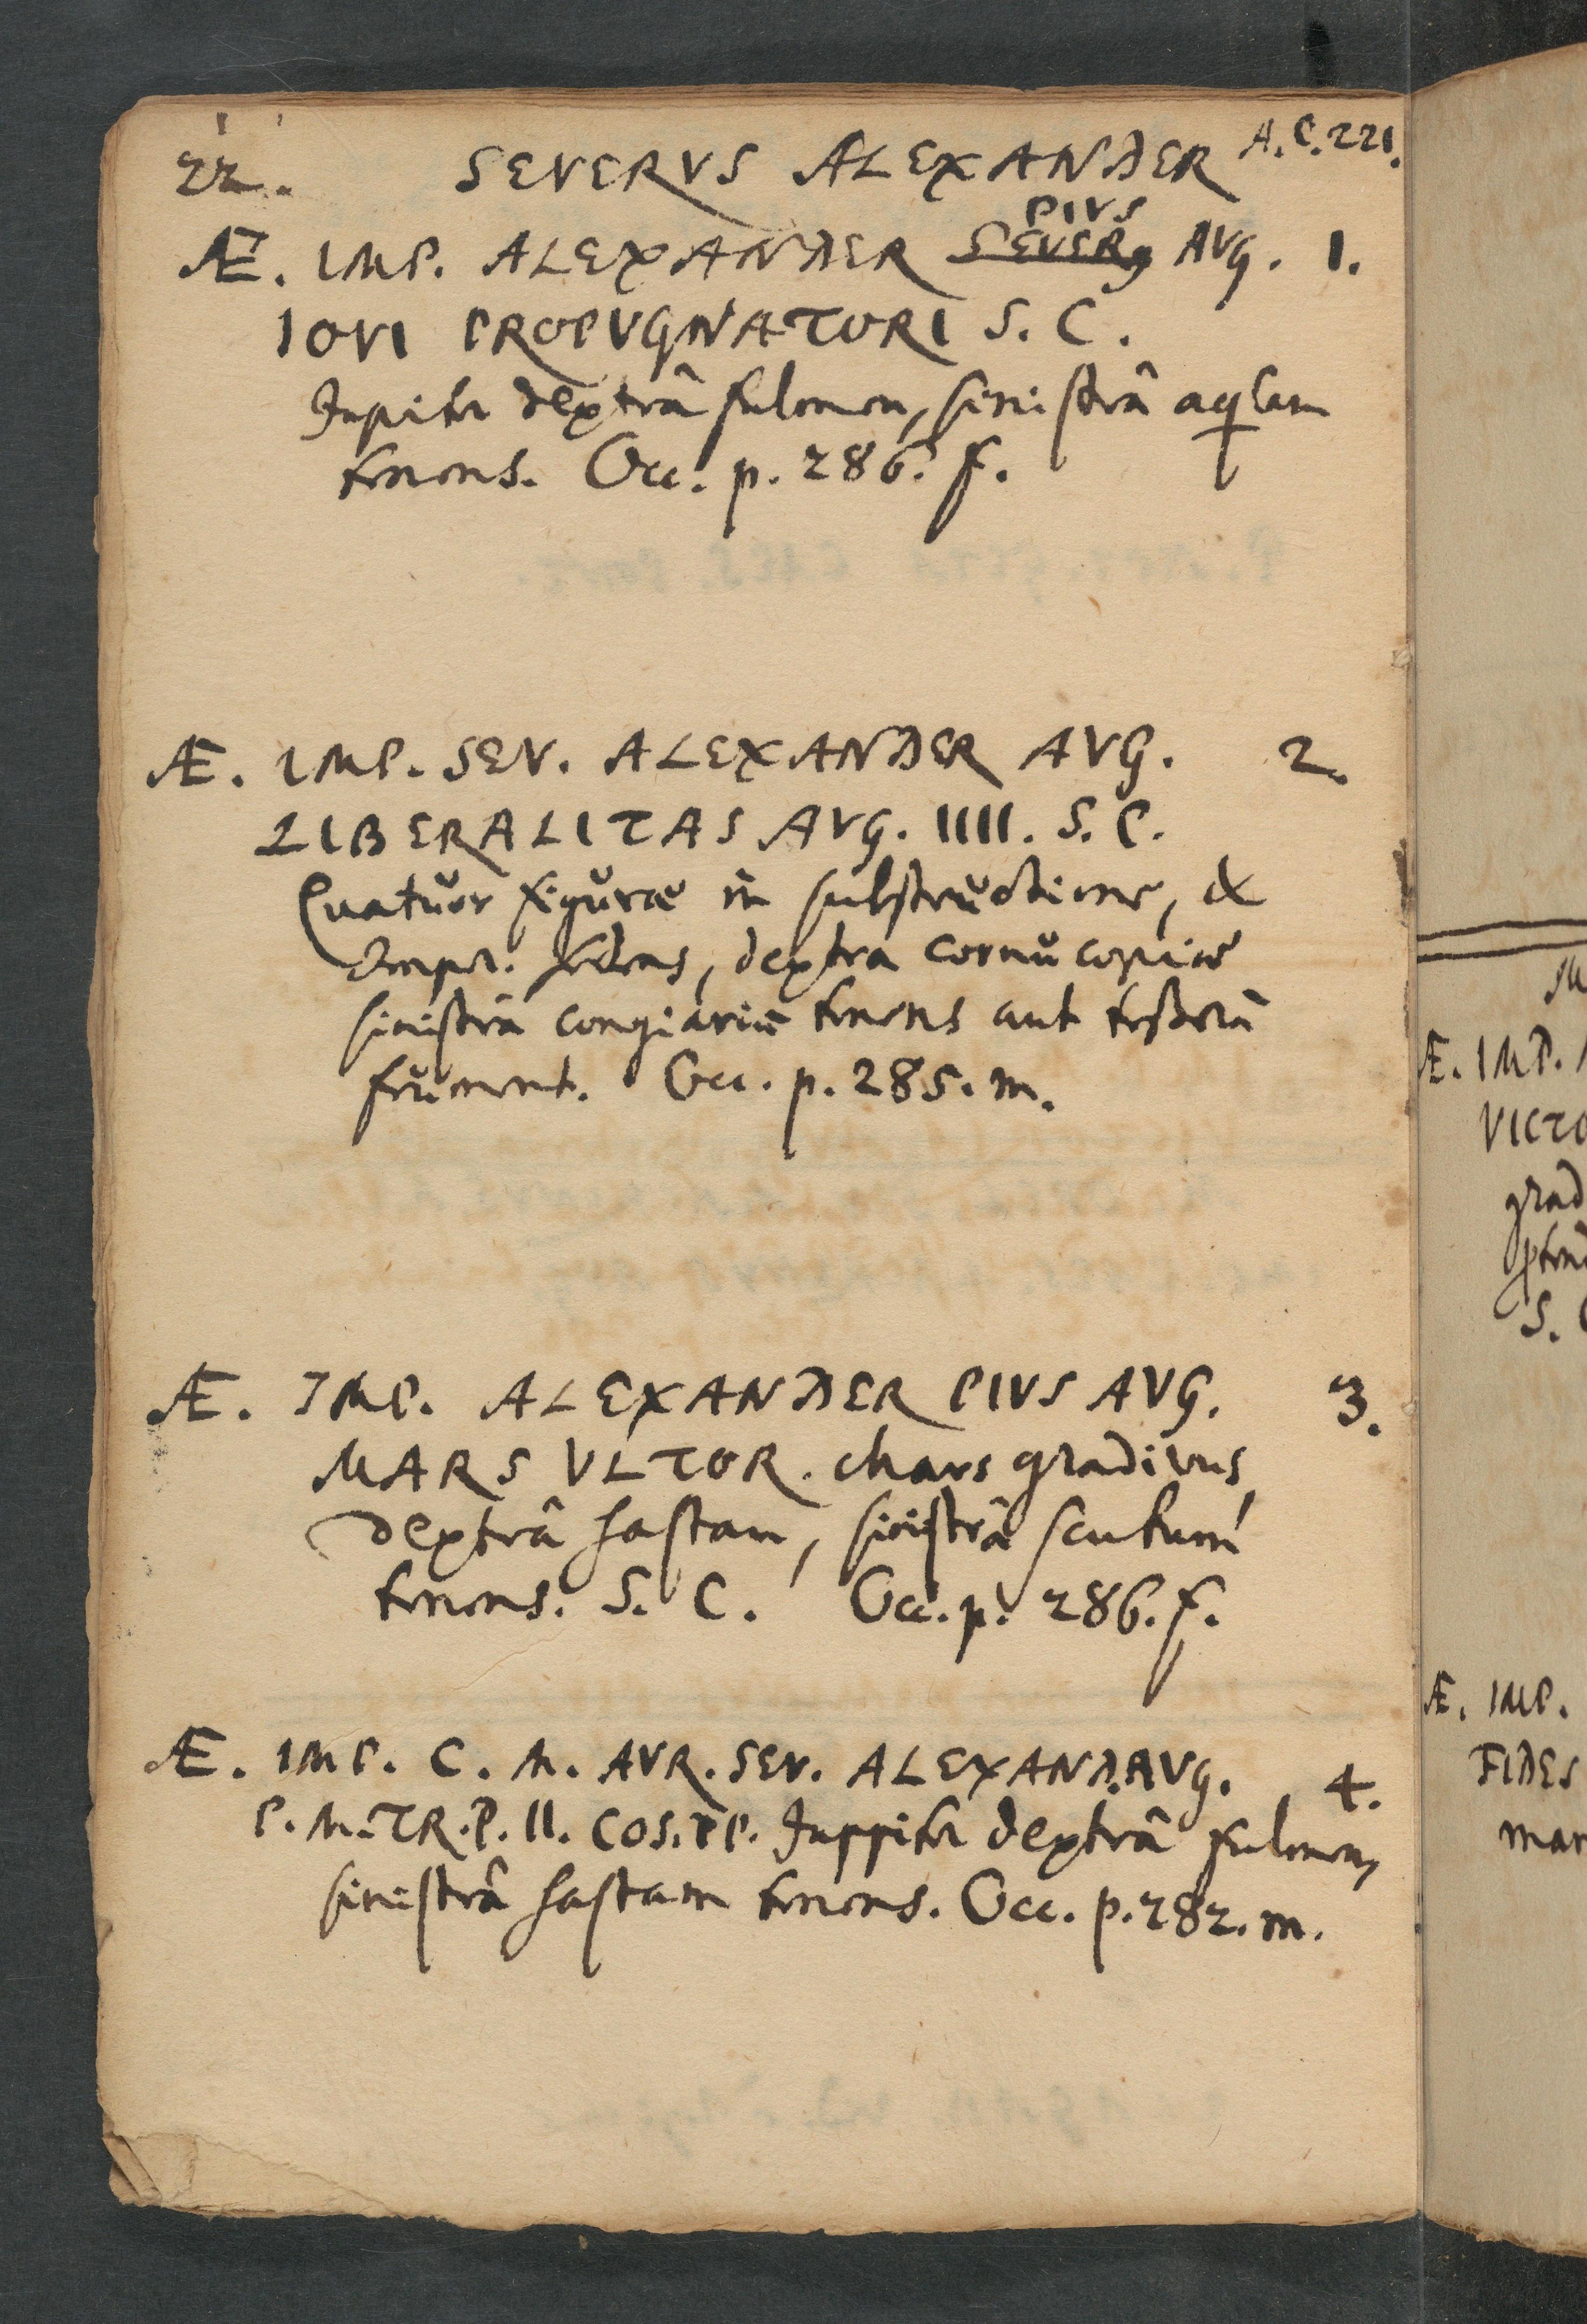 22. SEVERVS ALEXANDER A.C.221.
PIVS
Æ. IMP. ALEXANDER SEVERꝰ AVG. 1.
IOVI PROPVGNATORI S. C.
Jupiter dextrâ fulmen, sinistrâ aqlam
tenens. Occ. p. 286. f.
Æ. IMP. SEV. ALEXANDER AVG. 2.
LIBERALITAS AVG. IIII. S. C.
Quatŭor figŭræ in substrŭctione, &
Imper. sedens, dextra cornŭcopiæ
sinistrâ congiariū tenens aut tesserā
frŭment. Occ. p. 285. m.
Æ. IMP. ALEXANDER PIVS AVG. 3.
MARS VLTOR. Mars gradivus,
dextrâ hastam, sinistrâ scutum
tenens. S. C. Occ. p. 286. f.
Æ. IMP. C. M. AVR. SEV. ALEXAND. AVG. 4.
P. M. TR. P. II. COS. PP. Juppiter dextrâ fulmen,
sinistrâ hastam tenens. Occ. p. 282. m.
Æ. IMP.
VICTO
grad
S.
Æ. IMP.
FIDES
mar